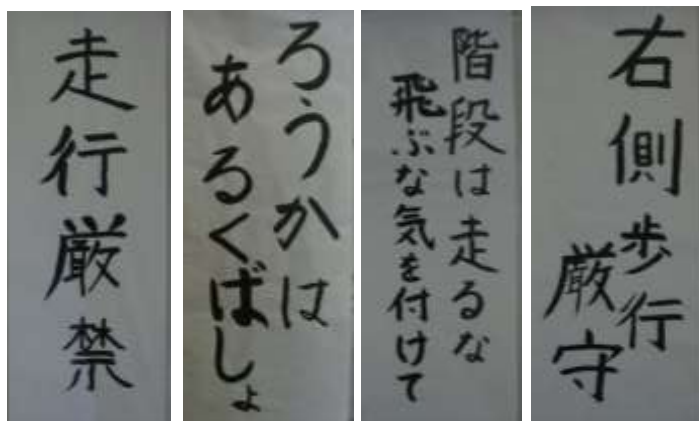 走行厳禁
ろうかは
あるくばしょ
階段は走るな
飛ぶな気を付けて
右側歩行
厳守